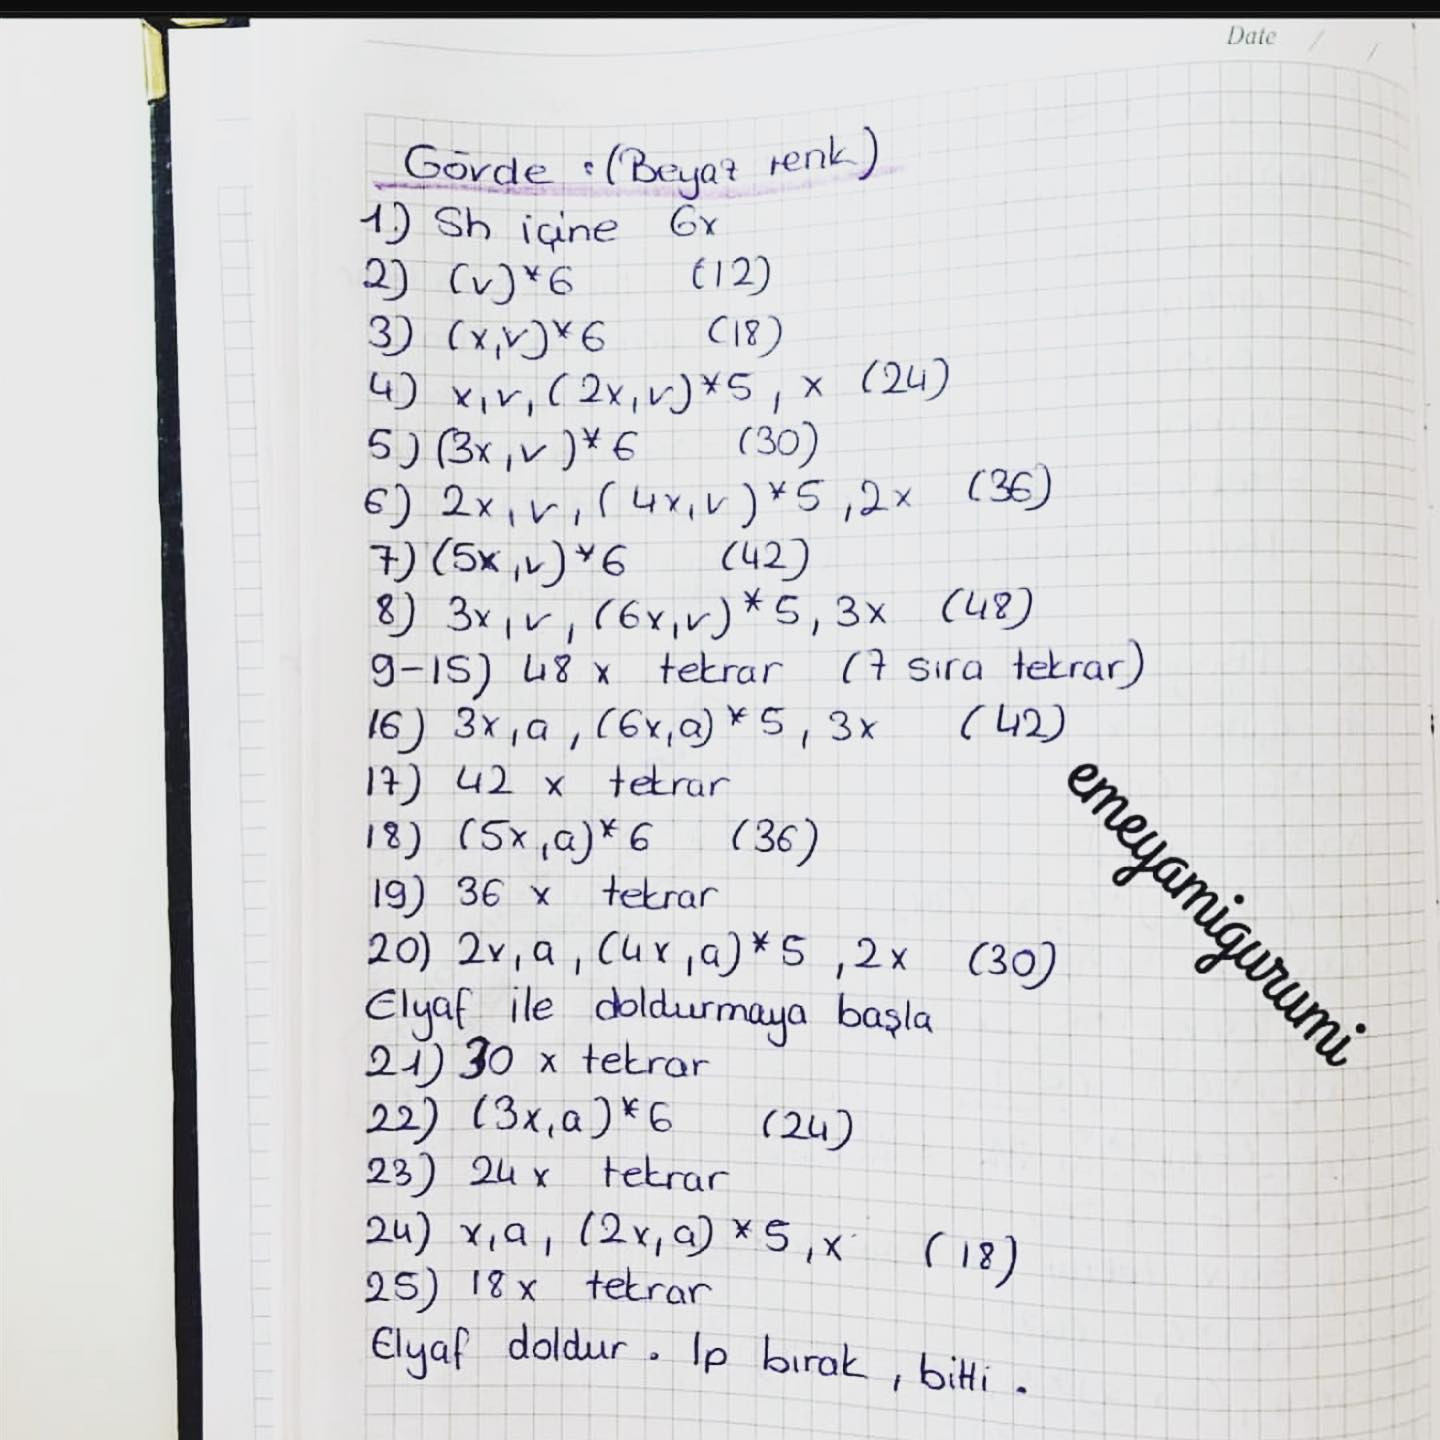 Date / /
Gövde : (Beyaz renk)
1.) Sh içine 6x
2) (v)*6 (12)
3) (x,v)*6 (18)
4) x,v,(2x,v)*5, x (24)
5) (3x,v)*6 (30)
6) 2x,v,(4x,v)*5,2x (36)
7) (5x,v)*6 (42)
8) 3x,v,(6x,v)*5,3x (48)
9-15) 48 x tekrar (7 sıra tekrar)
16) 3x,a,(6x,a)*5,3x (42)
17) 42 x tekrar
18) (5x,a)*6 (36)
19) 36 x tekrar
20) 2x,a,(4x,a)*5,2x (30)
Elyaf ile doldurmaya başla
21) 30 x tekrar
22) (3x,a)*6 (24)
23) 24x tekrar
24) x,a,(2x,a)*5,x (18)
25) 18x tekrar
Elyaf doldur. Ip bırak, bitti.
emeyamigurumi